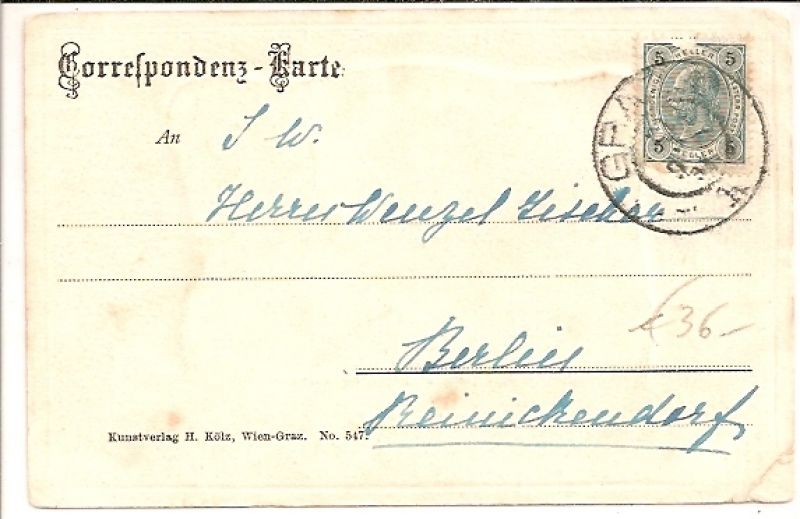 Correspondenz-Karte.
5 HELLER 5
5 HELLER 5
GRA
An J W.
Herrn Wenzel Fischer
€ 36-
Berlin
Reinickendorf
Kunstverlag H. Kölz, Wien-Graz. No. 547.